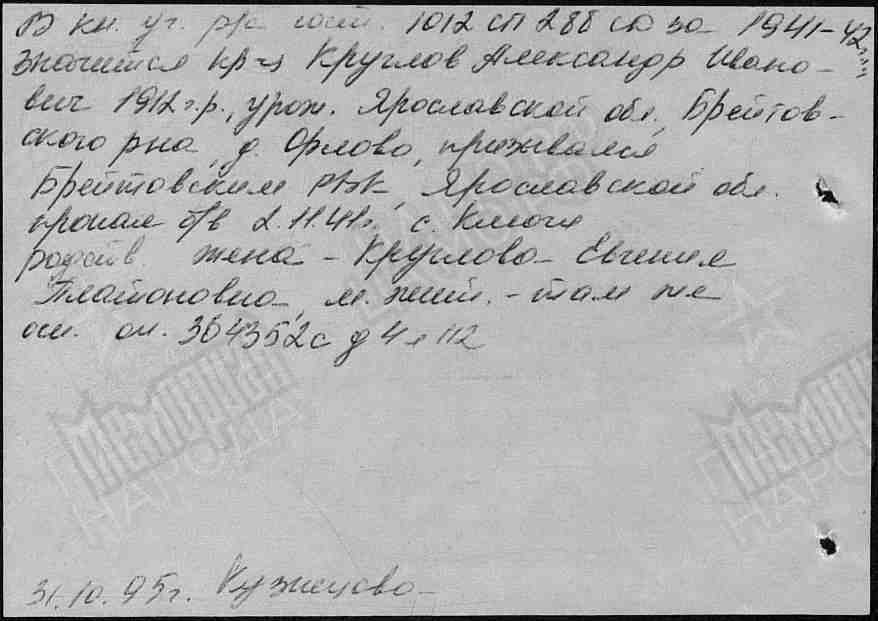 В кн. уч. р/с сост. 1012 сп 288 сд за 1941-42г.г.
значится кр-ц Круглов Александр Ивано-
вич 1912 г.р., урож. Ярославской обл., Брейтов-
ского р-на, д. Орлово, призывался
Брейтовским РВК, Ярославской обл.
пропал б/в 2.11.41г. с. Ключи
родств. жена - Круглова Евгения
Платоновна, м. жит. - там же
осн. оп. 304352с д 4 л 112
ПАМЯТЬ НАРОДА
31.10.95г. Кузнецова